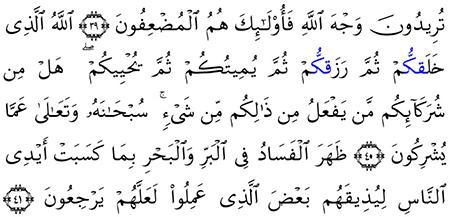 تُرِيدُونَ وَجْهَ ٱللَّهِ فَأُو۟لَـٰٓئِكَ هُمُ ٱلْمُضْعِفُونَ ﴿٣٩﴾ ٱللَّهُ ٱلَّذِى
خَلَقَكُمْ ثُمَّ رَزَقَكُمْ ثُمَّ يُمِيتُكُمْ ثُمَّ يُحْيِيكُمْ ۖ هَلْ مِن
شُرَكَآئِكُم مَّن يَفْعَلُ مِن ذَٰلِكُم مِّن شَىْءٍ ۚ سُبْحَـٰنَهُۥ وَتَعَـٰلَىٰ عَمَّا
يُشْرِكُونَ ﴿٤٠﴾ ظَهَرَ ٱلْفَسَادُ فِى ٱلْبَرِّ وَٱلْبَحْرِ بِمَا كَسَبَتْ أَيْدِى
ٱلنَّاسِ لِيُذِيقَهُم بَعْضَ ٱلَّذِى عَمِلُوا۟ لَعَلَّهُمْ يَرْجِعُونَ ﴿٤١﴾